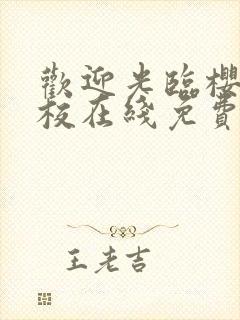 歡迎光臨櫻
板在綫免費
王老吉